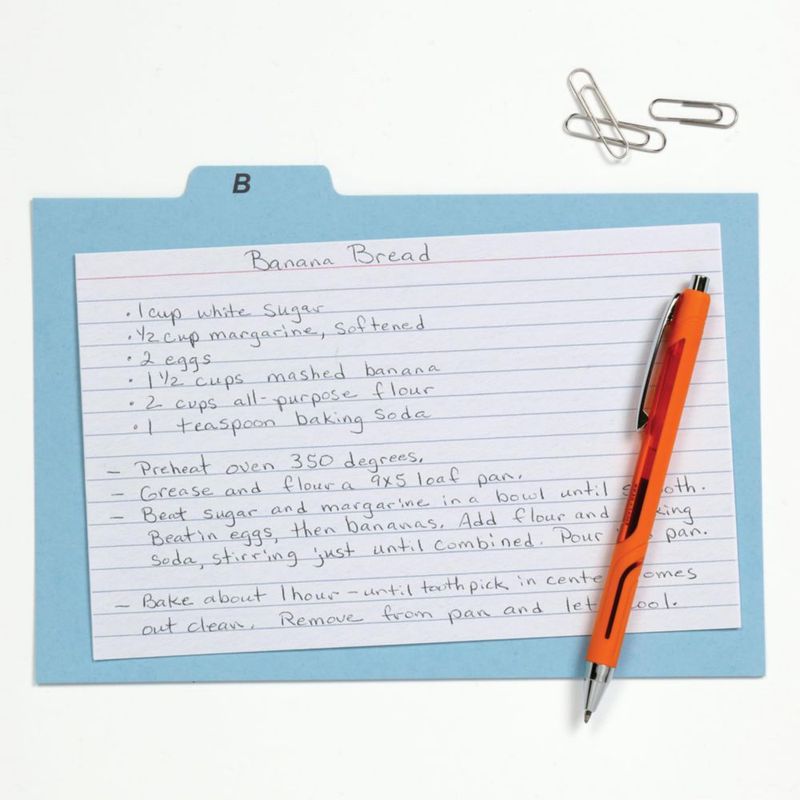 B
Banana Bread
· 1 cup white sugar
· 1/2 cup margarine, softened
· 2 eggs
· 1 1/2 cups mashed banana
· 2 cups all-purpose flour
· 1 teaspoon baking soda
– Preheat oven 350 degrees.
– Grease and flour a 9x5 loaf pan.
– Beat sugar and margarine in a bowl until
Beat in eggs, then bananas. Add flour and
soda, stirring just until combined. Pour pan.
– Bake about 1 hour – until toothpick in
out clean. Remove from pan and let